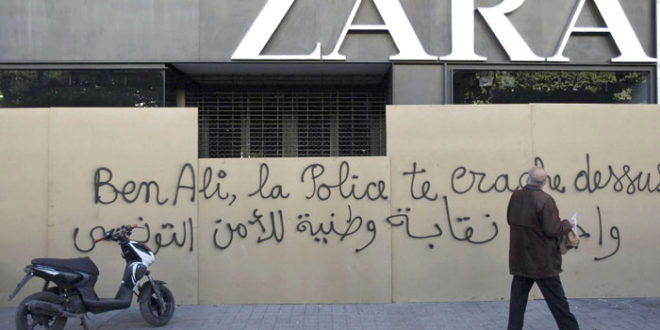 ZARA
Ben Ali, la Police te crache dessus
نقابة وطنية للأمن التونسي